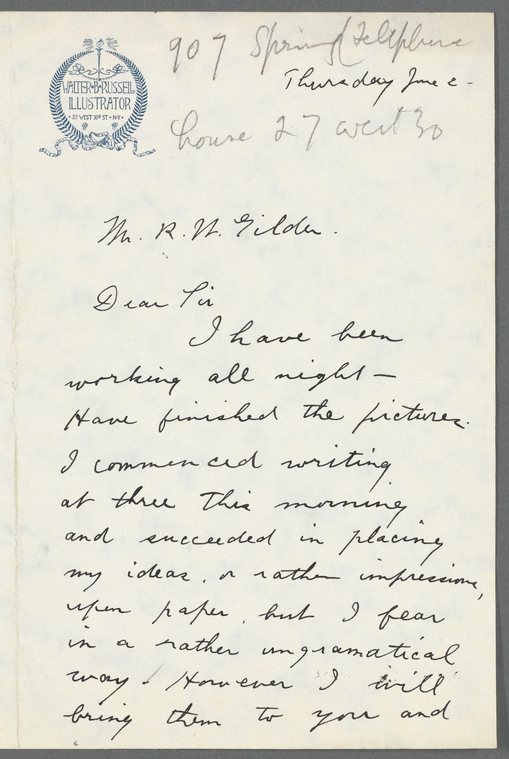 WALTER·B·RUSSELL
ILLUSTRATOR
· 27 WEST 30th ST · N·Y ·
907 Spring (Telephone
Thursday June 2 -
house 27 west 30
Mr. R. W. Gilder.
Dear Sir
I have been
working all night —
Have finished the pictures.
I commenced writing
at three this morning
and succeeded in placing
my ideas, or rather impressions,
upon paper, but I fear
in a rather ungramatical
way. However I will
bring them to you and